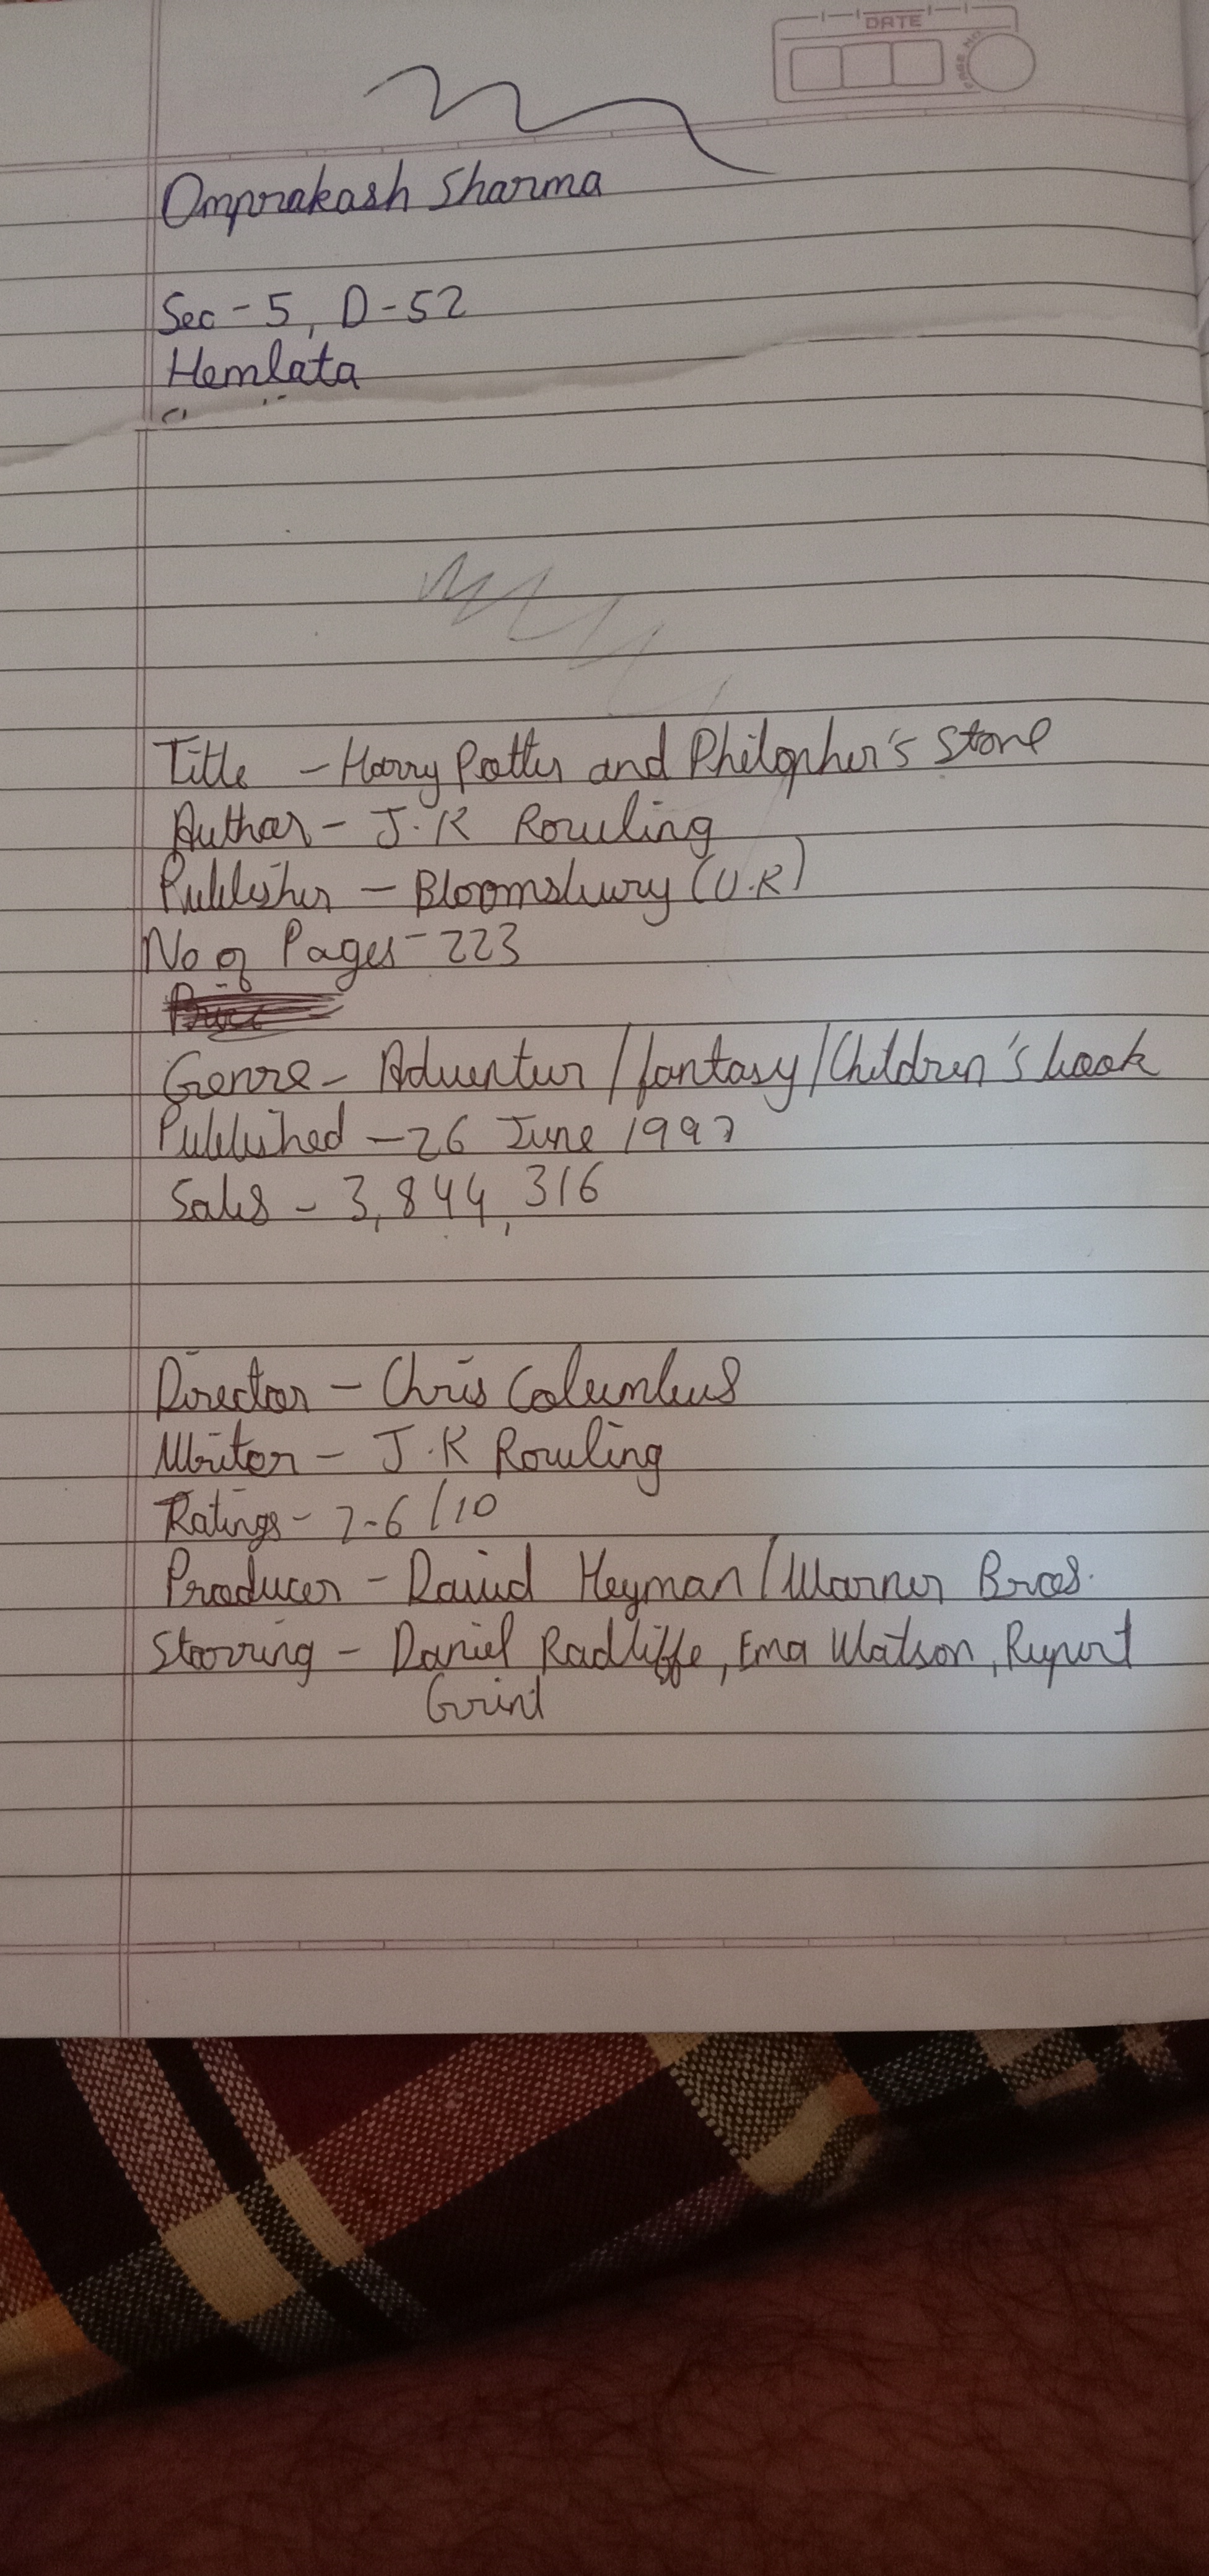 DATE
PAGE NO.
Omprakash Sharma
Sec - 5, D - 52
Hemlata
Title - Harry Potter and Philopher's Stone
Author - J.K Rowling
Publisher - Bloomsbury (U.K)
No of Pages - 223
Price
Genre - Adventur / fantasy / Children's book
Published - 26 June 1997
Sales - 3,844,316
Director - Chris Columbus
Writer - J.K Rowling
Ratings - 7.6 / 10
Producer - David Heyman / Warner Bros.
Starring - Daniel Radcliffe, Ema Watson, Rupert
Grint